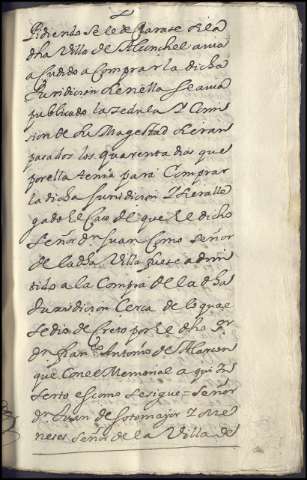 Pidiendo se le de Parase de la
dha Villa de Monchel auia
acudido a Comprar la dicha
Juridicion Y en ella Se auia
publicado la zedula Y Comi
sion de Su Magestad Y eran
pasados los quarenta dias que
por ella tenia para Comprar
la dicha Juridicion Y era lle
gado el Caso del que el dicho
Señor Dn Juan Como Señor
de la dha Villa fuese admi
tido a la Compra de la dha
Jurisdicion Cerca de lo qual
se dio decreto por el dho Sr
Dn Franco Antonio de Alarcon
que Con el Memorial a qui in
serto es Como se sigue = Señor
Dn Juan de Sotomayor Y Me
neses Señor de la Villa de